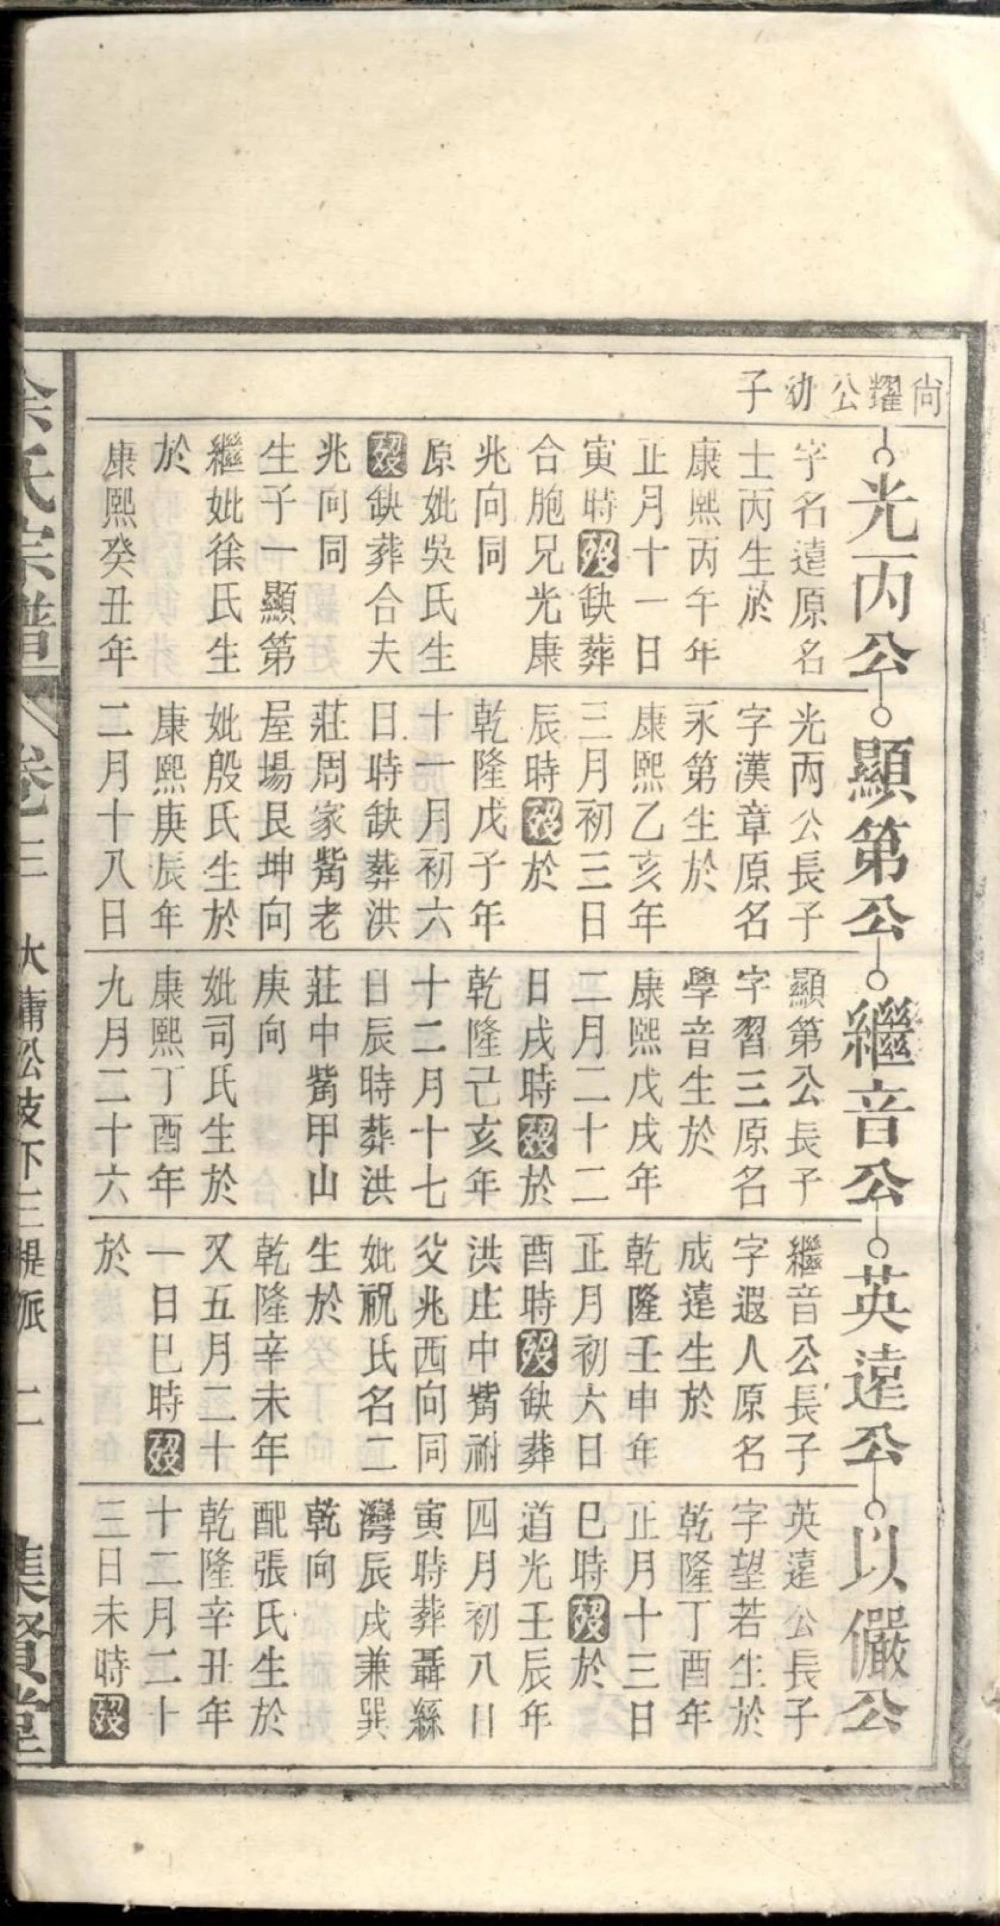 尙耀公幼子
光丙公
字名遠原名
士丙生於
康熙丙午年
正月十一日
寅時歿缺葬
合胞兄光康
兆向同
原妣吳氏生
歿缺葬合夫
兆向同
生子一顯第
繼妣徐氏生
於
康熙癸丑年
顯第公
光丙公長子
字漢章原名
永第生於
康熙乙亥年
三月初三日
辰時歿於
乾隆戊子年
十一月初六
日時缺葬洪
莊周家觜老
屋場艮坤向
妣殷氏生於
康熙庚辰年
二月十八日
繼音公
顯第公長子
字習三原名
學音生於
康熙戊戌年
二月二十二
日戌時歿於
乾隆己亥年
十二月十七
日辰時葬洪
莊中觜甲山
庚向
妣司氏生於
康熙丁酉年
九月二十六
英遠公
繼音公長子
字遐人原名
成遠生於
乾隆壬申年
正月初六日
酉時歿缺葬
洪庄中觜祔
父兆酉向同
妣祝氏名二
生於
乾隆辛未年
又五月二十
一日巳時歿
於
以儼公
英遠公長子
字望若生於
乾隆丁酉年
正月十三日
巳時歿於
道光壬辰年
四月初八日
寅時葬聶繇
灣辰戌兼巽
乾向
配張氏生於
乾隆辛丑年
十二月二十
三日未時歿
氏宗譜 卷三 大庸公支下三提派 二 集賢堂